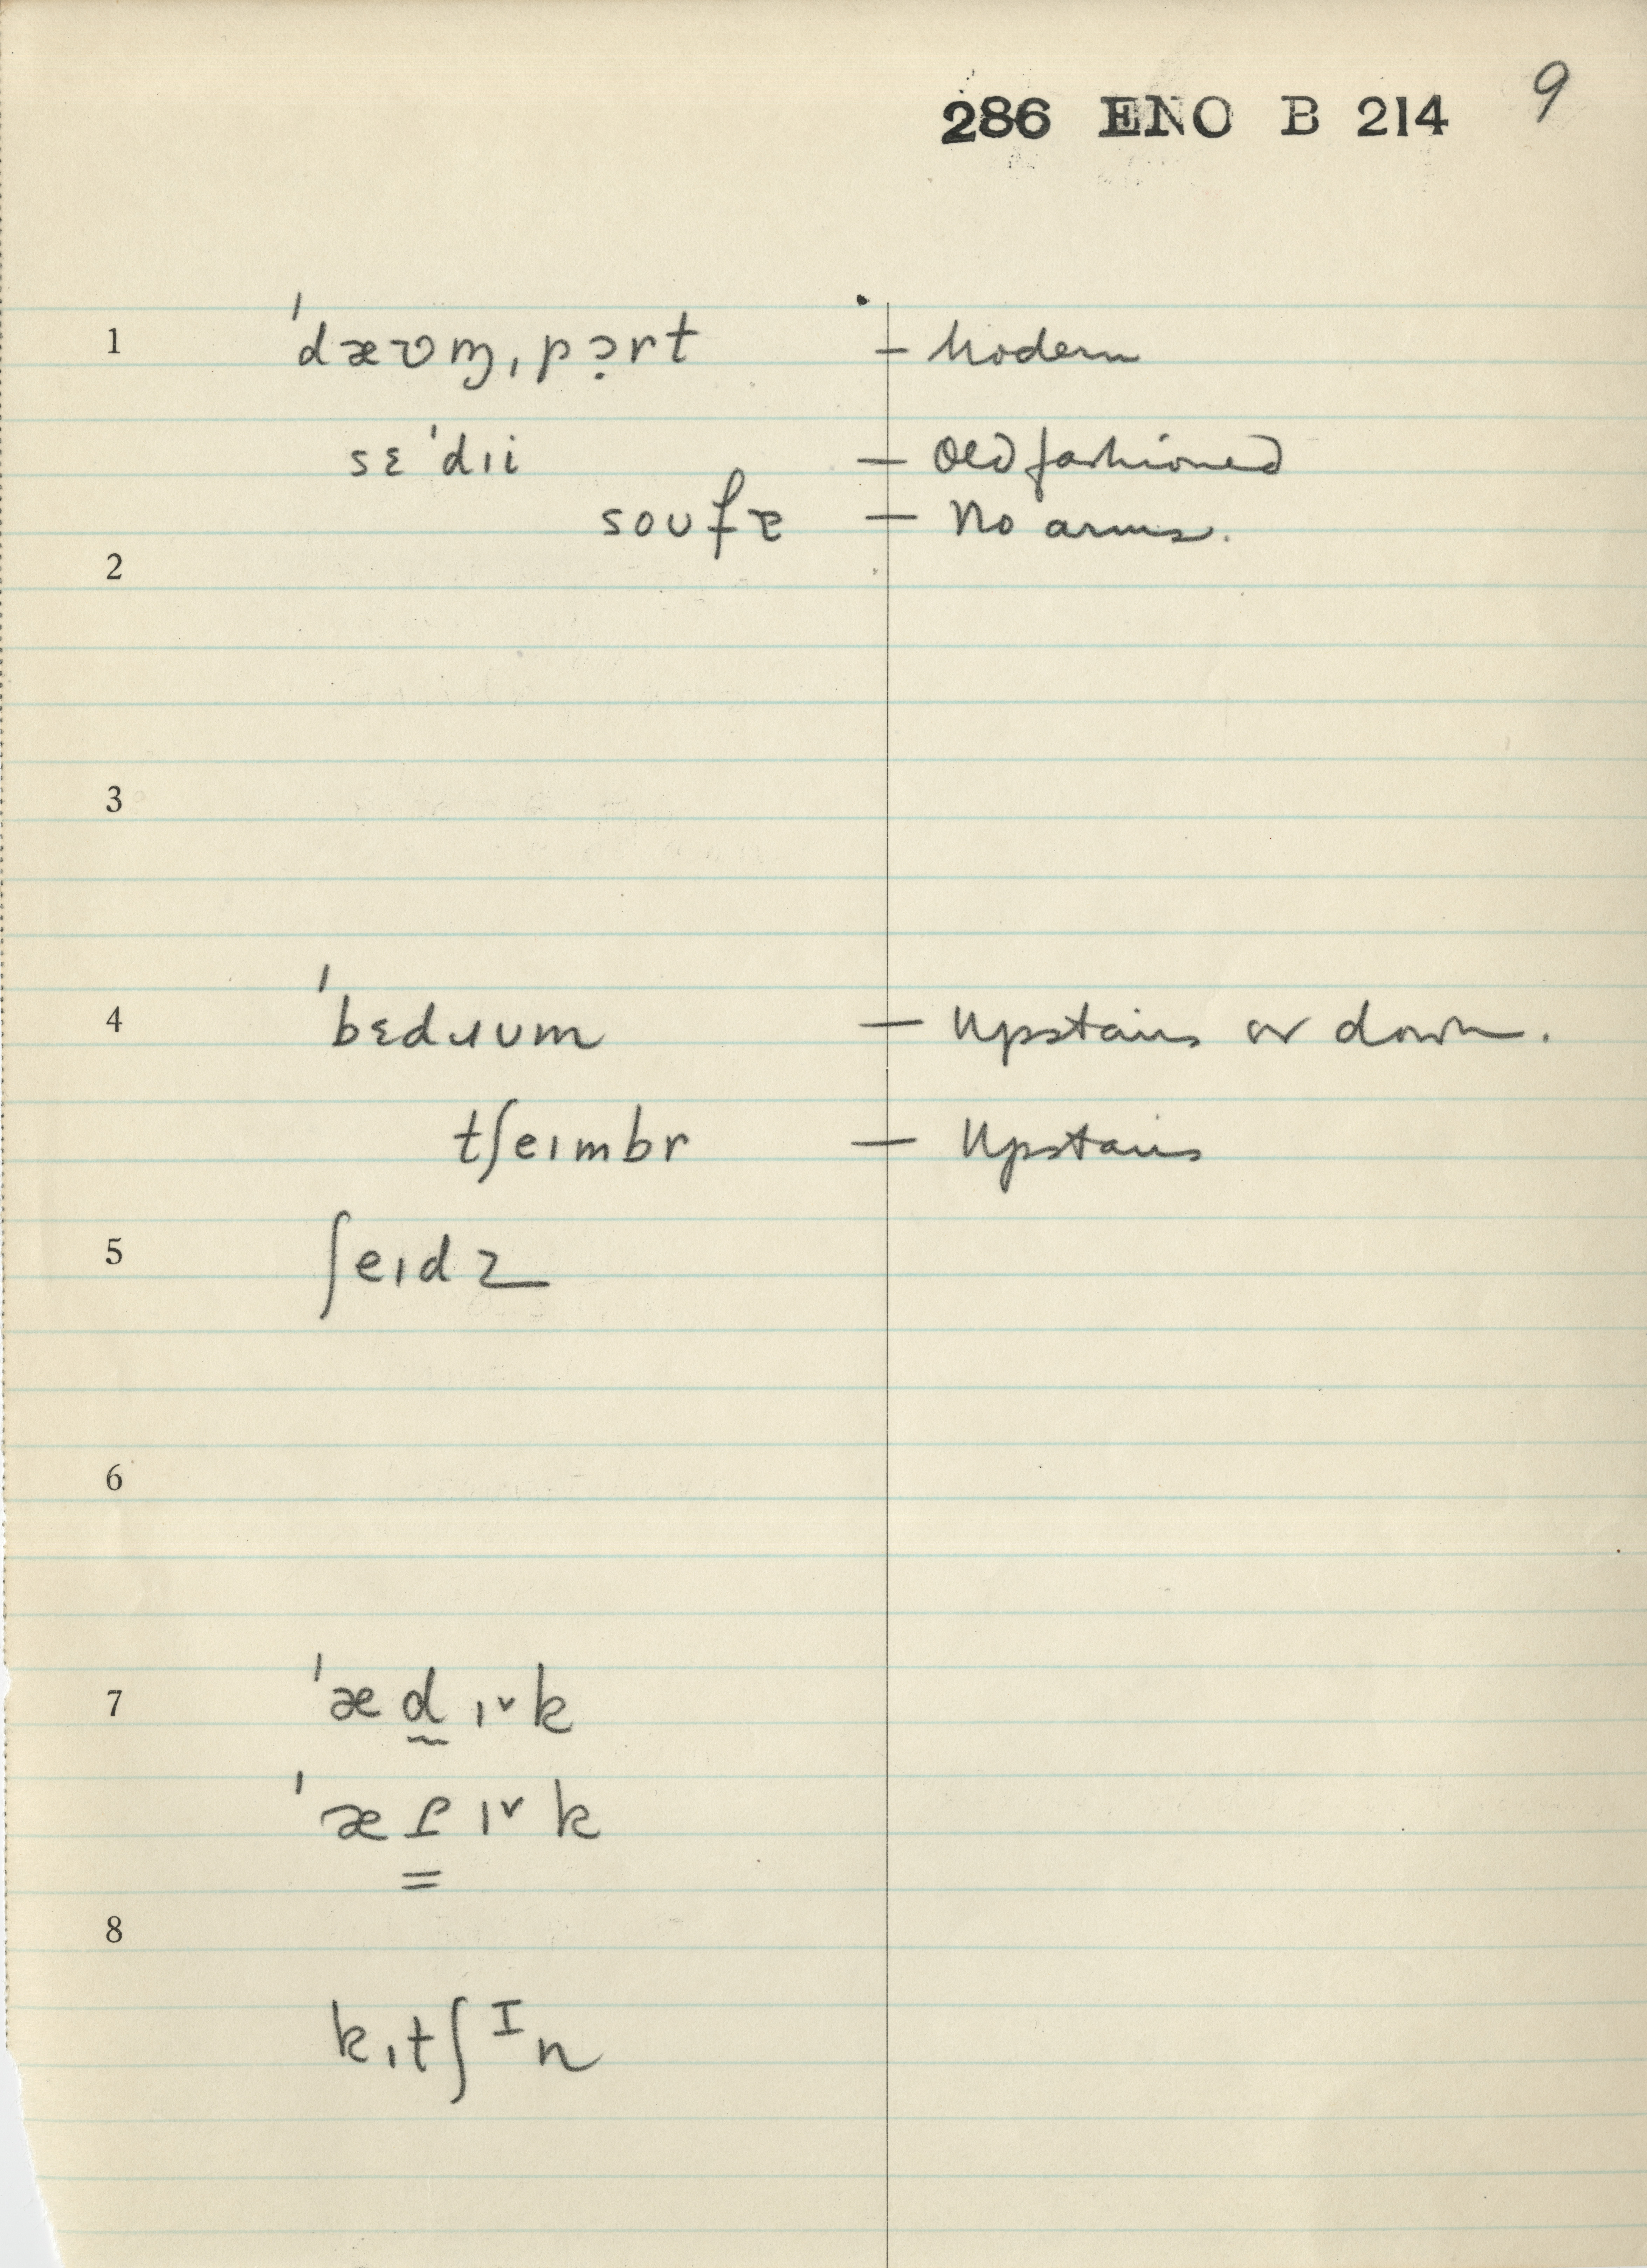 286 ENO B 214 9
1 ˈdæʊɱˌpɔ̣rt – Modern
sɛˈdɪi – Old fashioned
soufɐ – No arms.
2
3
4 ˈbɛdɹum – Upstairs or down.
tʃeɪmbr – Upstairs
5 ʃeɪdz
6
7 ˈæd̰ɪ˅k
ˈæɾ͇ɪ˅k
8
kɪtʃᴵn